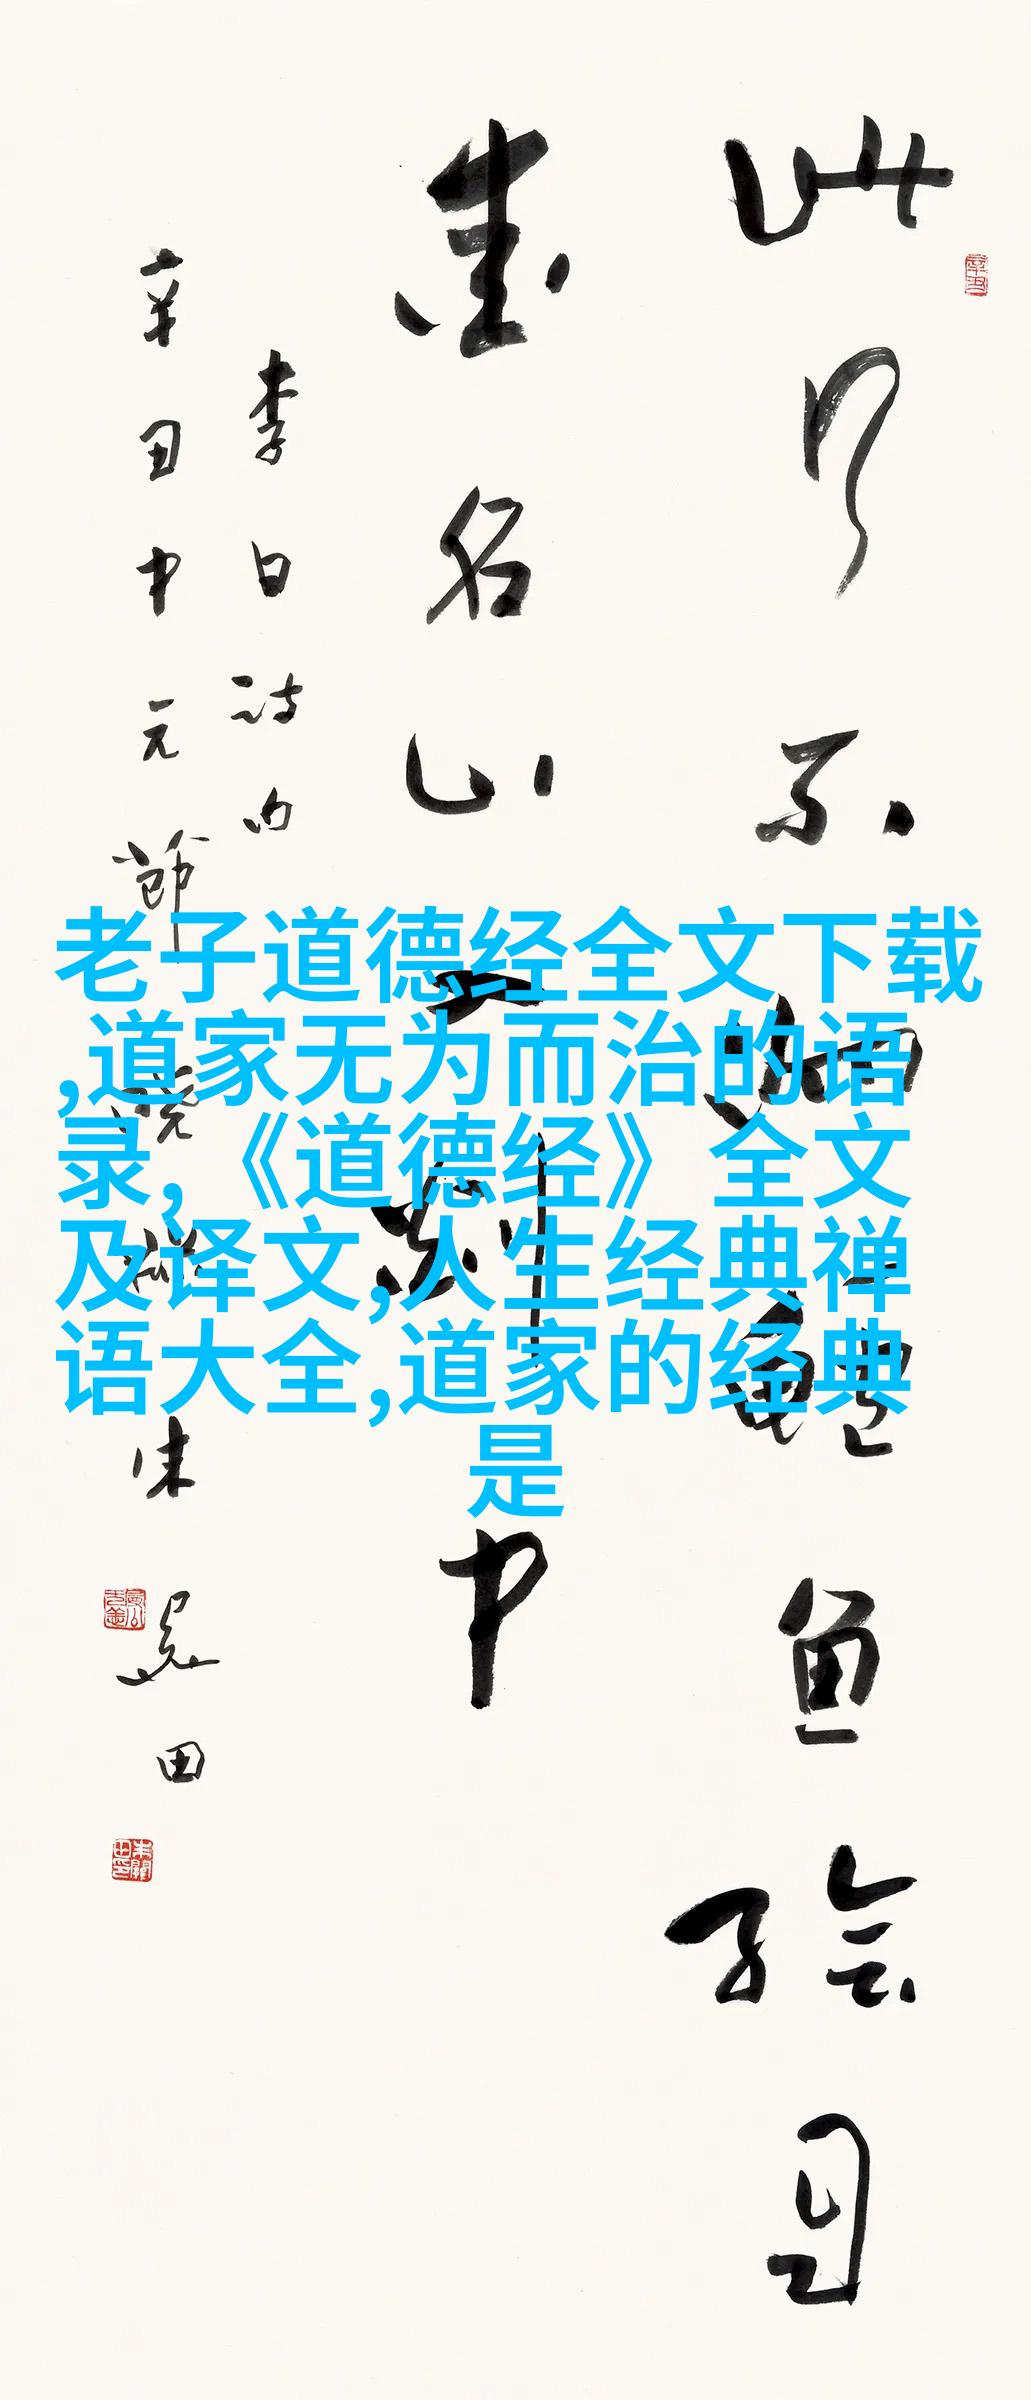 此行不為鱸魚鱠自
愛名山入剡中
李白詩句
辛丑中元節 朱關田
老子道德经全文下载
,道家无为而治的语
录,《道德经》全文
及译文,人生经典禅
语大全,道家的经典
是